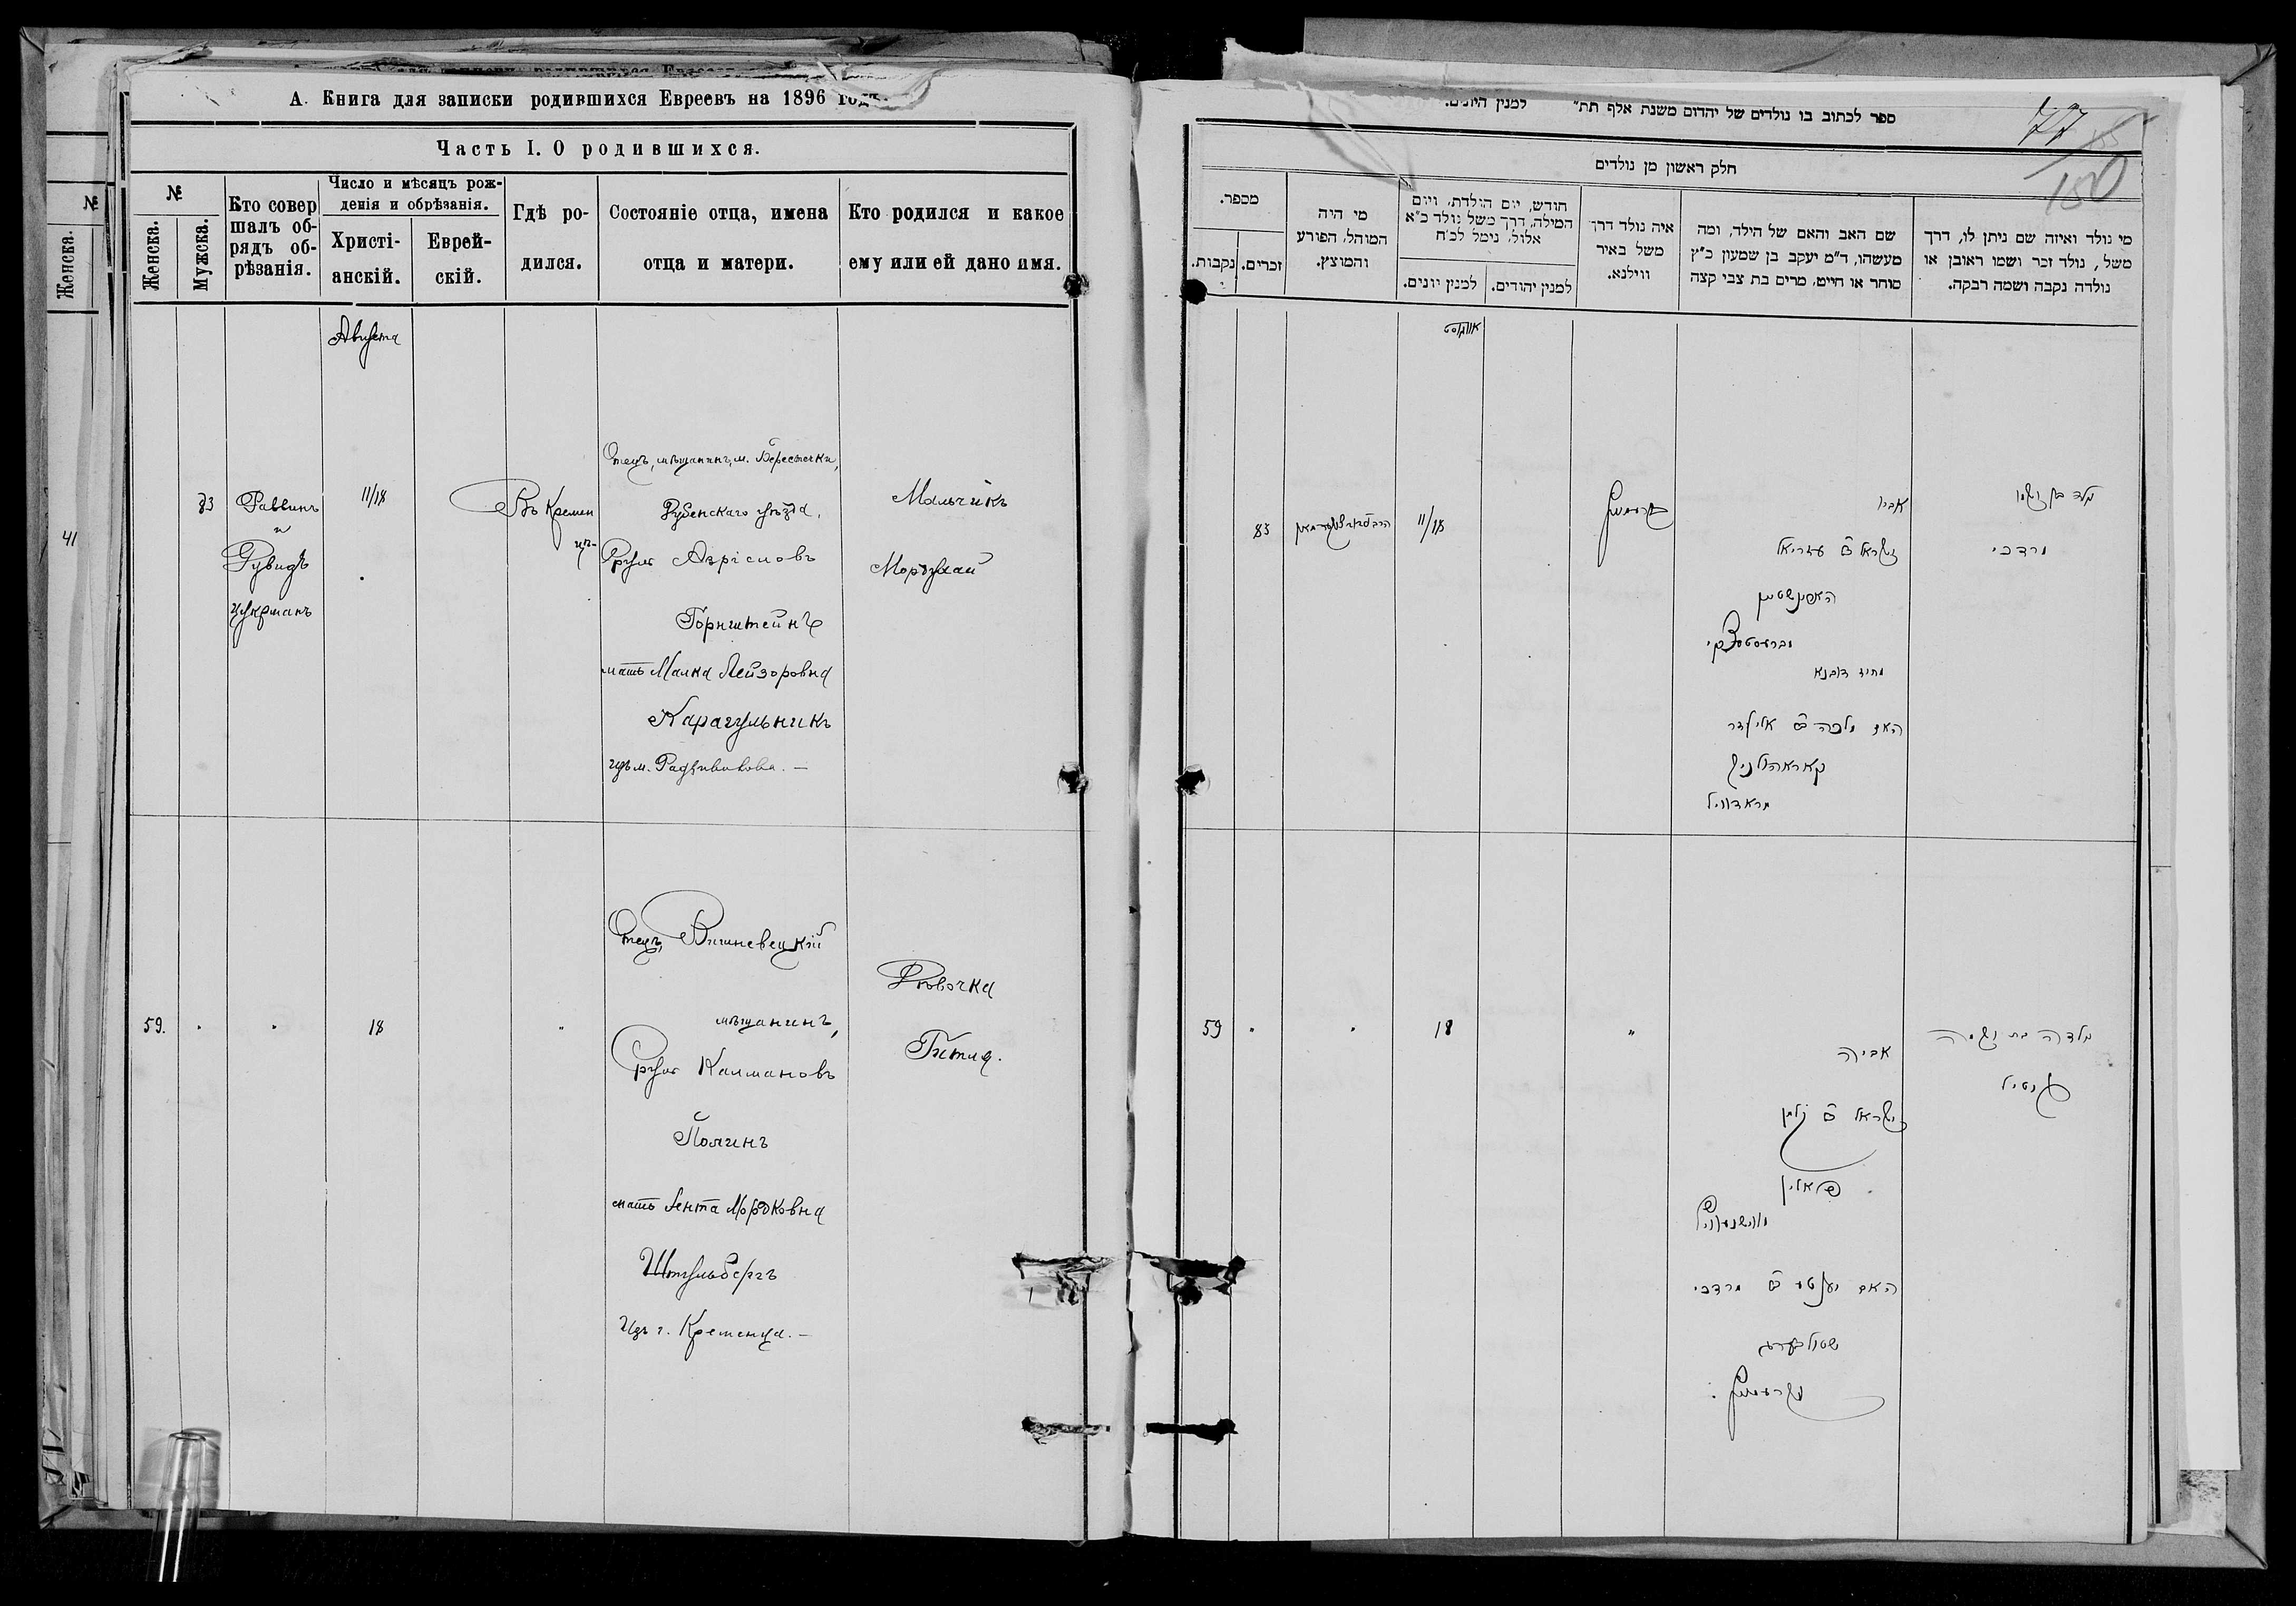 А. Книга для записки родившихся Евреевъ на 1896 годъ.
Часть I. О родившихся.
№
№
Женска.
Женска.
Мужска.
Кто совер
шалъ об-
рядъ об-
рѣзанія.
Число и мѣсяцъ рож-
денія и обрѣзанія.
Христі-
анскій.
Еврей-
скій.
Гдѣ ро-
дился.
Состояніе отца, имена
отца и матери.
Кто родился и какое
ему или ей дано имя.
41
Августа
83
Раввинъ
и
цукрманъ
11/18
Въ Кремен
цѣ-
Отецъ, мѣщанинъ, м. Берестечки,
Дубенскаго уѣзда,
Сруль Азріеловъ
Горнштейнъ
мать Малка Лейзоровна
Карагульникъ
изъ м. Радзивилова. —
Мальчикъ
Мордхай
59.
"
"
18
"
Отецъ, Вишневецкій
мѣщанинъ,
Сруль Калмановъ
Полинъ
мать Ента Мордковна
Штульбергъ
изъ г. Кременца. —
Дѣвочка
Гитля.
ספר לכתוב בו נולדים של יהדום משנת אלף תת״ למנין היונים.
77
150
חלק ראשון מן נולדים
מספר.
נקבות.
זכרים.
מי היה
המוהל, הפורע
והמוצץ.
חודש, יום הולדת, ויום
המילה, דרך משל נולד כ״א
אלול, נימל לכ״ח
למנין יונים.
למנין יהודים.
איה נולד דרך
משל באיר
ווילנא.
שם האב והאם של הילד, ומה
מעשהו, ד״מ יעקב בן שמעון כ״ץ
סוחר או חייט, מרים בת צבי קצה
מי נולד ואיזה שם ניתן לו, דרך
משל, נולד זכר ושמו ראובן או
נולדה נקבה ושמה רבקה.
אווגוסט
83
11/18
אביו
ישראל ב״ר עזריאל
האפינשטיין
מחיד דובנא
האם מלכה ב״ר אליעזר
קאראהולניק
מראדוויל
ילד בן ושמו
מרדכי
59
"
"
18
"
אביה
ישראל ב״ר קלמן
פאלין
האם יענטע ב״ר מרדכי
שטולבערג
ילדה בת ושמה
גיטיל